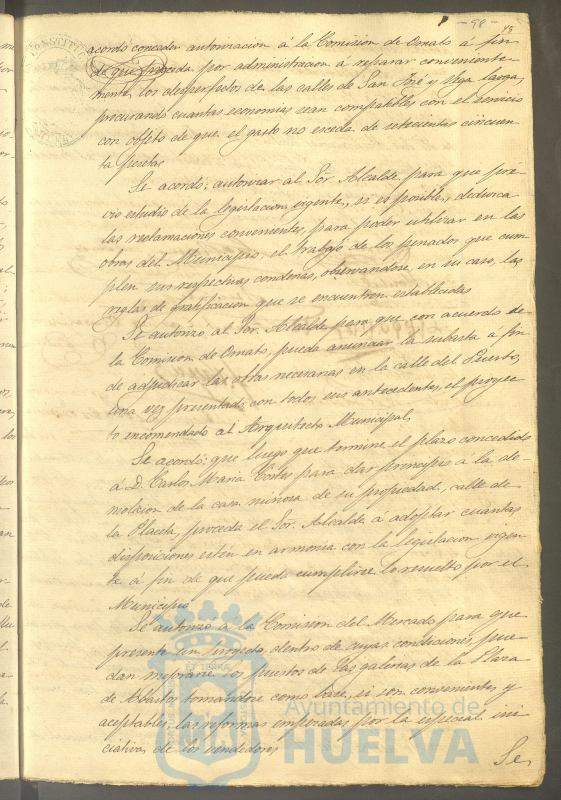 - 98 -
acordó conceder autorizacion á la Comision de Ornato á fin
de que proceda por administracion á reparar conveniente-
mente los desperfectos de las calles de San José y Vega larga,
procurando cuantas economias sean compatibles con el servicio
con objeto de que el gasto no esceda de setecientas cincuen-
ta pesetas
Se acordó: autorizar al Sór. Alcalde para que pré-
vio estudio de la legislacion vigente, si es posible, deduzca
las reclamaciones convenientes, para poder utilizar en las
obras del Municipio, el trabajo de los penados que cum-
plen sus respectivas condenas, observandose, en su caso, las
reglas de gratificacion que se encuentren establecidas
Se autorizó al Sór. Alcalde para que con acuerdo de
la Comision de Ornato, pueda anunciar la subasta á fin
de adjudicar las obras necesarias en la calle del Puerto,
una vez presentado con todos sus antecedentes, el proyec-
to encomendado al Arquitecto Municipal,
Se acordó: que luego que termine el plazo concedido
á D. Carlos Maria Cortes para dar principio á la de-
molicion de la casa ruinosa de su propiedad, calle de
la Placeta, proceda el Sór. Alcalde á adoptar cuántas
disposiciones estén en armonia con la legislacion vigen-
te á fin de que pueda cumplirse lo resuelto por el
Municipio
Se autorizó á la Comision del Mercado para que
presente un proyecto, dentro de cuyas condiciones pue-
dan mejorarse los puestos de las galerias de la Plaza
de Abastos tomandose como base, si son convenientes y
aceptables, las reformas empezadas por la especial ini-
ciativa de los vendedores
Se
Ayuntamiento de
HUELVA